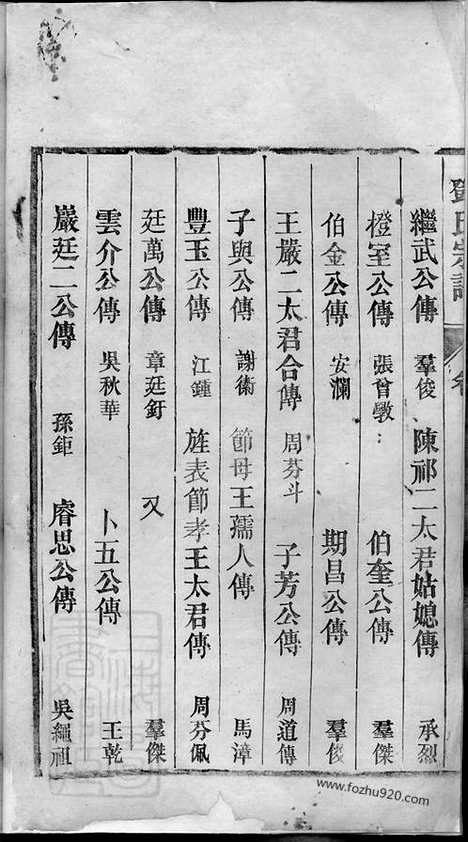 鄧氏宗譜 卷
繼武公傳 羣俊 陳祁二太君姑媳傳 承烈
橙室公傳 張曾敭 伯奎公傳 羣傑
伯金公傳 安瀾 期昌公傳 羣俊
王嚴二太君合傳 周芬斗 子芳公傳 周道傳
子與公傳 謝衛 節母王孺人傳 馬漳
豐玉公傳 江鍾 旌表節孝王太君傳 周芬佩
廷萬公傳 章廷釪 又 羣傑
雲介公傳 吳秋華 卜五公傳 王乾
巖廷二公傳 孫鉅 睿思公傳 吳繩祖
www.fozhu920.com